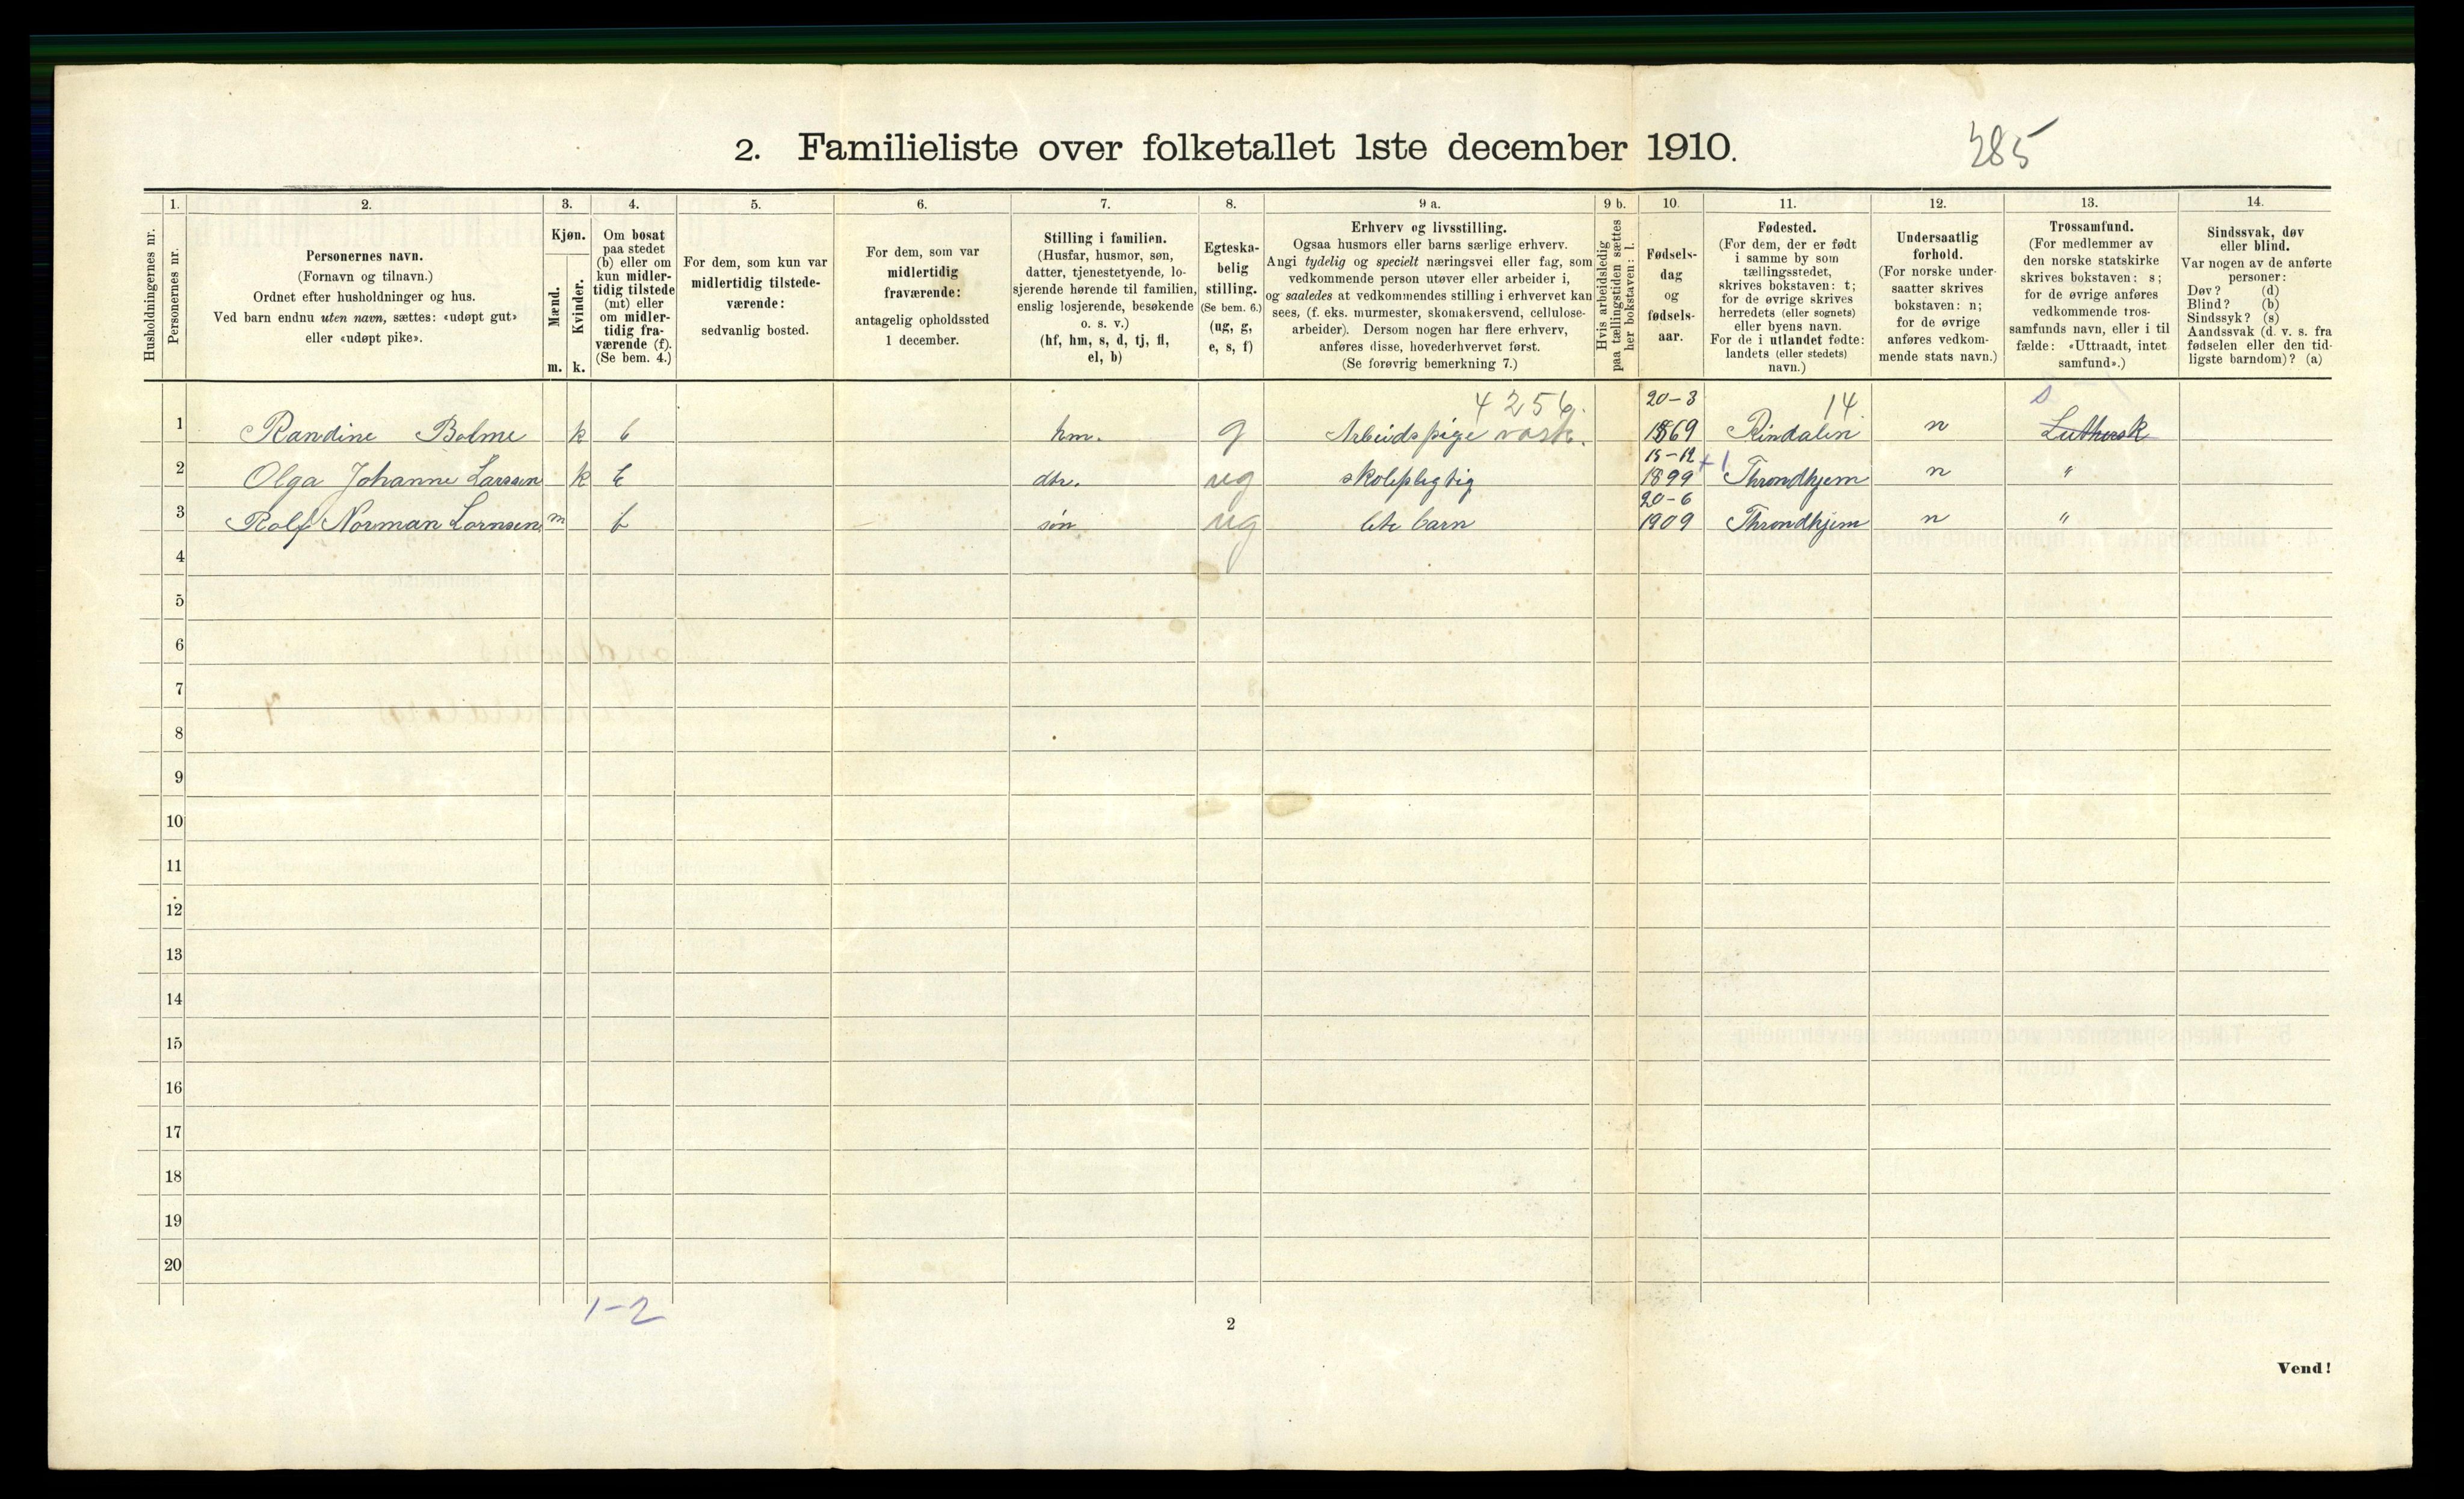 2. Familieliste over folketallet 1ste december 1910.
285
Husholdningernes nr.
1.
Personernes nr.
2.
Personernes navn.
(Fornavn og tilnavn.)
Ordnet efter husholdninger og hus.
Ved barn endnu uten navn, sættes: «udøpt gut»
eller «udøpt pike».
3.
Kjøn.
Mænd.
Kvinder.
m. k.
4.
Om bosat
paa stedet
(b) eller om
kun midler-
tidig tilstede
(mt) eller
om midler-
tidig fra-
værende (f).
(Se bem. 4.)
5.
For dem, som kun var
midlertidig tilstede-
værende:
sedvanlig bosted.
6.
For dem, som var
midlertidig
fraværende:
antagelig opholdssted
1 december.
7.
Stilling i familien.
(Husfar, husmor, søn,
datter, tjenestetyende, lo-
sjerende hørende til familien,
enslig losjerende, besøkende
o. s. v.)
(hf, hm, s, d, tj, fl,
el, b)
8.
Egteska-
belig
stilling.
(Se bem. 6.)
(ug, g,
e, s, f)
9 a.
Erhverv og livsstilling.
Ogsaa husmors eller barns særlige erhverv.
Angi tydelig og specielt næringsvei eller fag, som
vedkommende person utøver eller arbeider i,
og saaledes at vedkommendes stilling i erhvervet kan
sees, (f. eks. murmester, skomakersvend, cellulose-
arbeider). Dersom nogen har flere erhverv,
anføres disse, hovederhvervet først.
(Se forøvrig bemerkning 7.)
9 b.
Hvis arbeidsledig
paa tællingstiden sættes
her bokstaven: l.
10.
Fødsels-
dag
og
fødsels-
aar.
11.
Fødested.
(For dem, der er født
i samme by som
tællingsstedet,
skrives bokstaven: t;
for de øvrige skrives
herredets (eller sognets)
eller byens navn.
For de i utlandet fødte:
landets (eller stedets)
navn.)
12.
Undersaatlig
forhold.
(For norske under-
saatter skrives
bokstaven: n;
for de øvrige
anføres vedkom-
mende stats navn.)
13.
Trossamfund.
(For medlemmer av
den norske statskirke
skrives bokstaven: s;
for de øvrige anføres
vedkommende tros-
samfunds navn, eller i til
fælde: «Uttraadt, intet
samfund».)
14.
Sindssvak, døv
eller blind.
Var nogen av de anførte
personer:
Døv? (d)
Blind? (b)
Sindssyk? (s)
Aandssvak (d. v. s. fra
fødselen eller den tid-
ligste barndom)? (a)
4256. 20-3 14. s
1 Randine Bolme k b hm. g Arbeidspige vask. 1869 Rindalen n Luthersk
15-12 +1
2 Olga Johanne Larssen k b dtr. ug skolepligtig 1899 Throndhjem n "
20-6
3 Rolf Norman Lornsen m b søn ug lite barn 1909 Throndhjem n "
4
5
6
7
8
9
10
11
12
13
14
15
16
17
18
19
20
1-2
2
Vend!